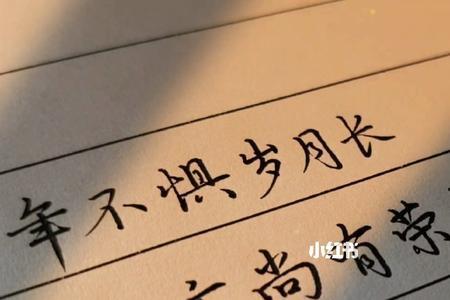 年不惧岁月长
尚有荣
小红书